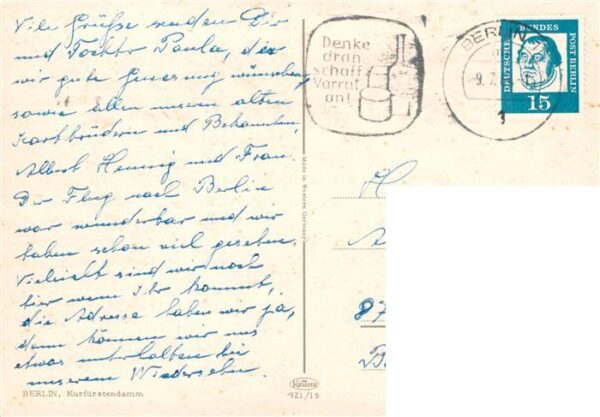 Viele Grüße senden Dir
und Tochter Paula, der
wir gute Genesung wünschen,
sowie allen unseren alten
Kartbrüdern und Bekannten,
Albert Hennig und Frau.
Der Flug nach Berlin
war wunderbar und wir
haben schon viel gesehen.
Vielleicht sind wir noch
hier wenn Ihr kommt,
die Adresse haben wir ja,
dann können wir uns
etwas unterhalten bei
unserem Wiedersehen.
BERLIN, Kurfürstendamm
Denke
dran
schaff
Vorrat
an!
BERLIN
-9.7.
1
DEUTSCHE BUNDESPOST BERLIN
15
Made in Western Germany
H
87
B
Krüger
921/15